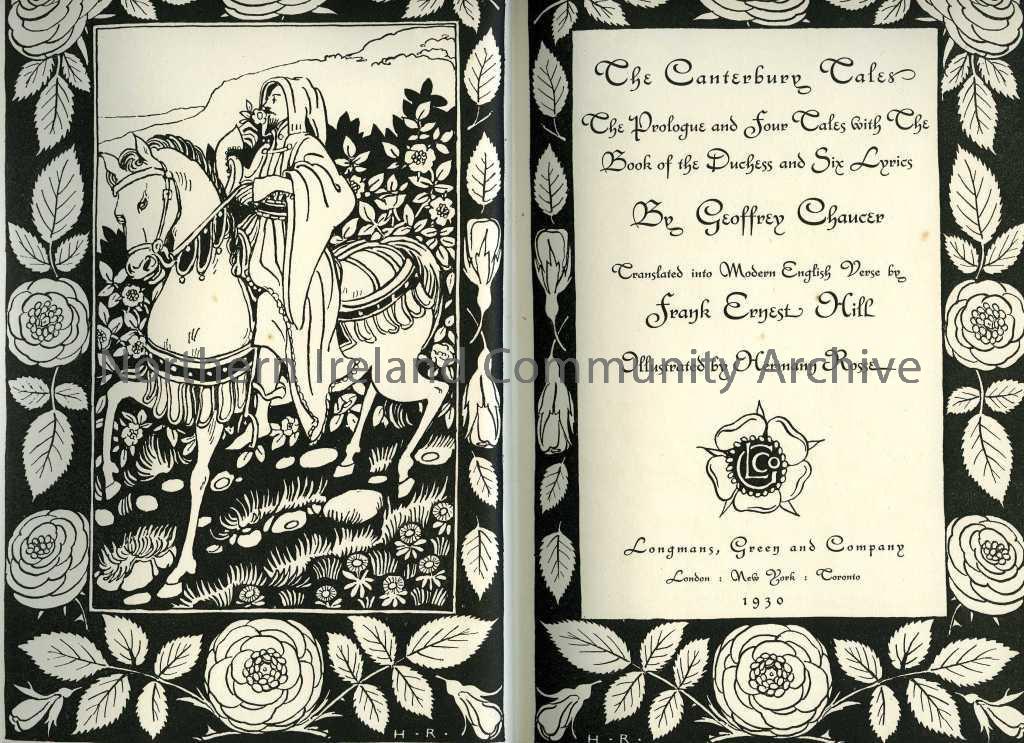 The Canterbury Tales
The Prologue and Four Tales with The
Book of the Duchess and Six Lyrics
By Geoffrey Chaucer
Translated into Modern English Verse by
Frank Ernest Hill
Illustrated by Hermann Rosse
Northern Ireland Community Archive
LGCo
Longmans, Green and Company
London : New York : Toronto
1930
H. R.
H. R.